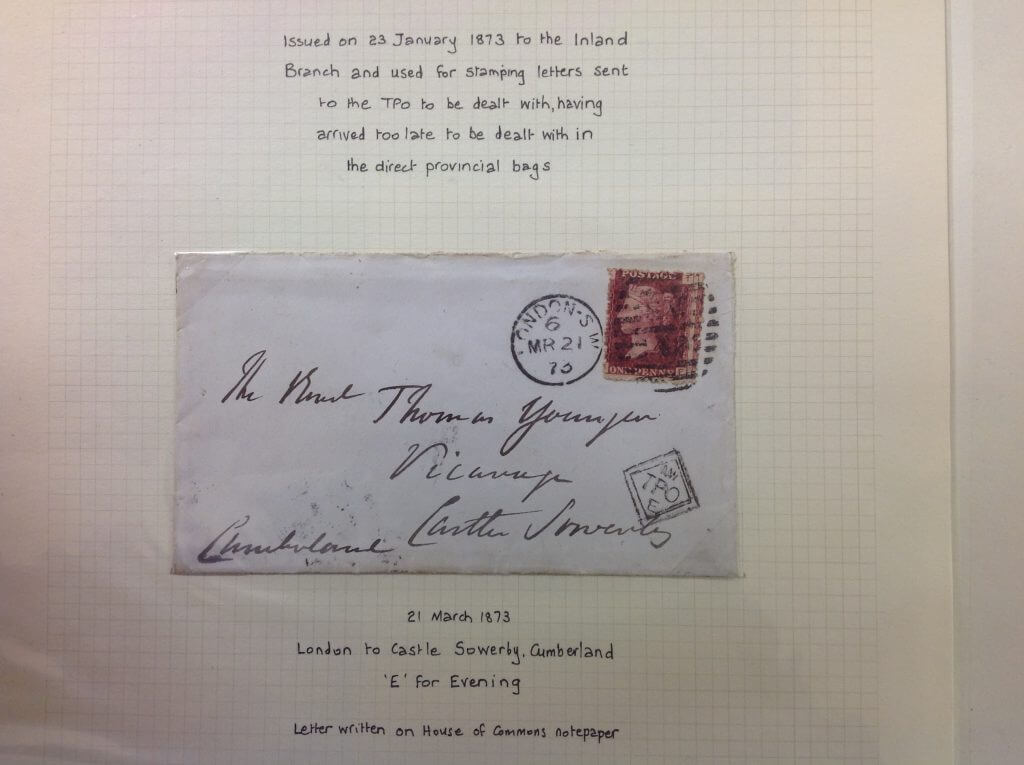 Issued on 23 January 1873 to the Inland
Branch and used for stamping letters sent
to the TPO to be dealt with, having
arrived too late to be dealt with in
the direct provincial bags
POSTAGE
LONDON-S W
6
MR 21
73
ONE PENNY
The Revd Thomas Younger
Vicarage
NW
TPO
E
Castle Sowerby
Cumberland
21 March 1873
London to Castle Sowerby, Cumberland
'E' for Evening
Letter written on House of Commons notepaper